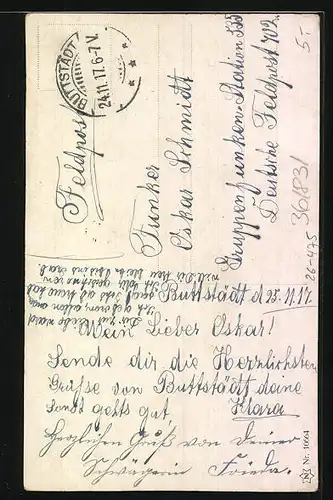 BUTTSTÄDT
24.11.17. 6-7 V.
Feldpost
Funker
Oskar Schmidt
Gruppenfunken-Station 535
Deutsche Feldpost 702
5.-
36831
26-475
Buttstädt d 23.11.17.
Mein Lieber Oskar!
Sende dir die Herzlichsten
Grüße von Buttstädt deine
Sonst gehts gut. Klara
Herzlichen Gruß von Deiner
Schwägerin Frieda.
Nr. 10664